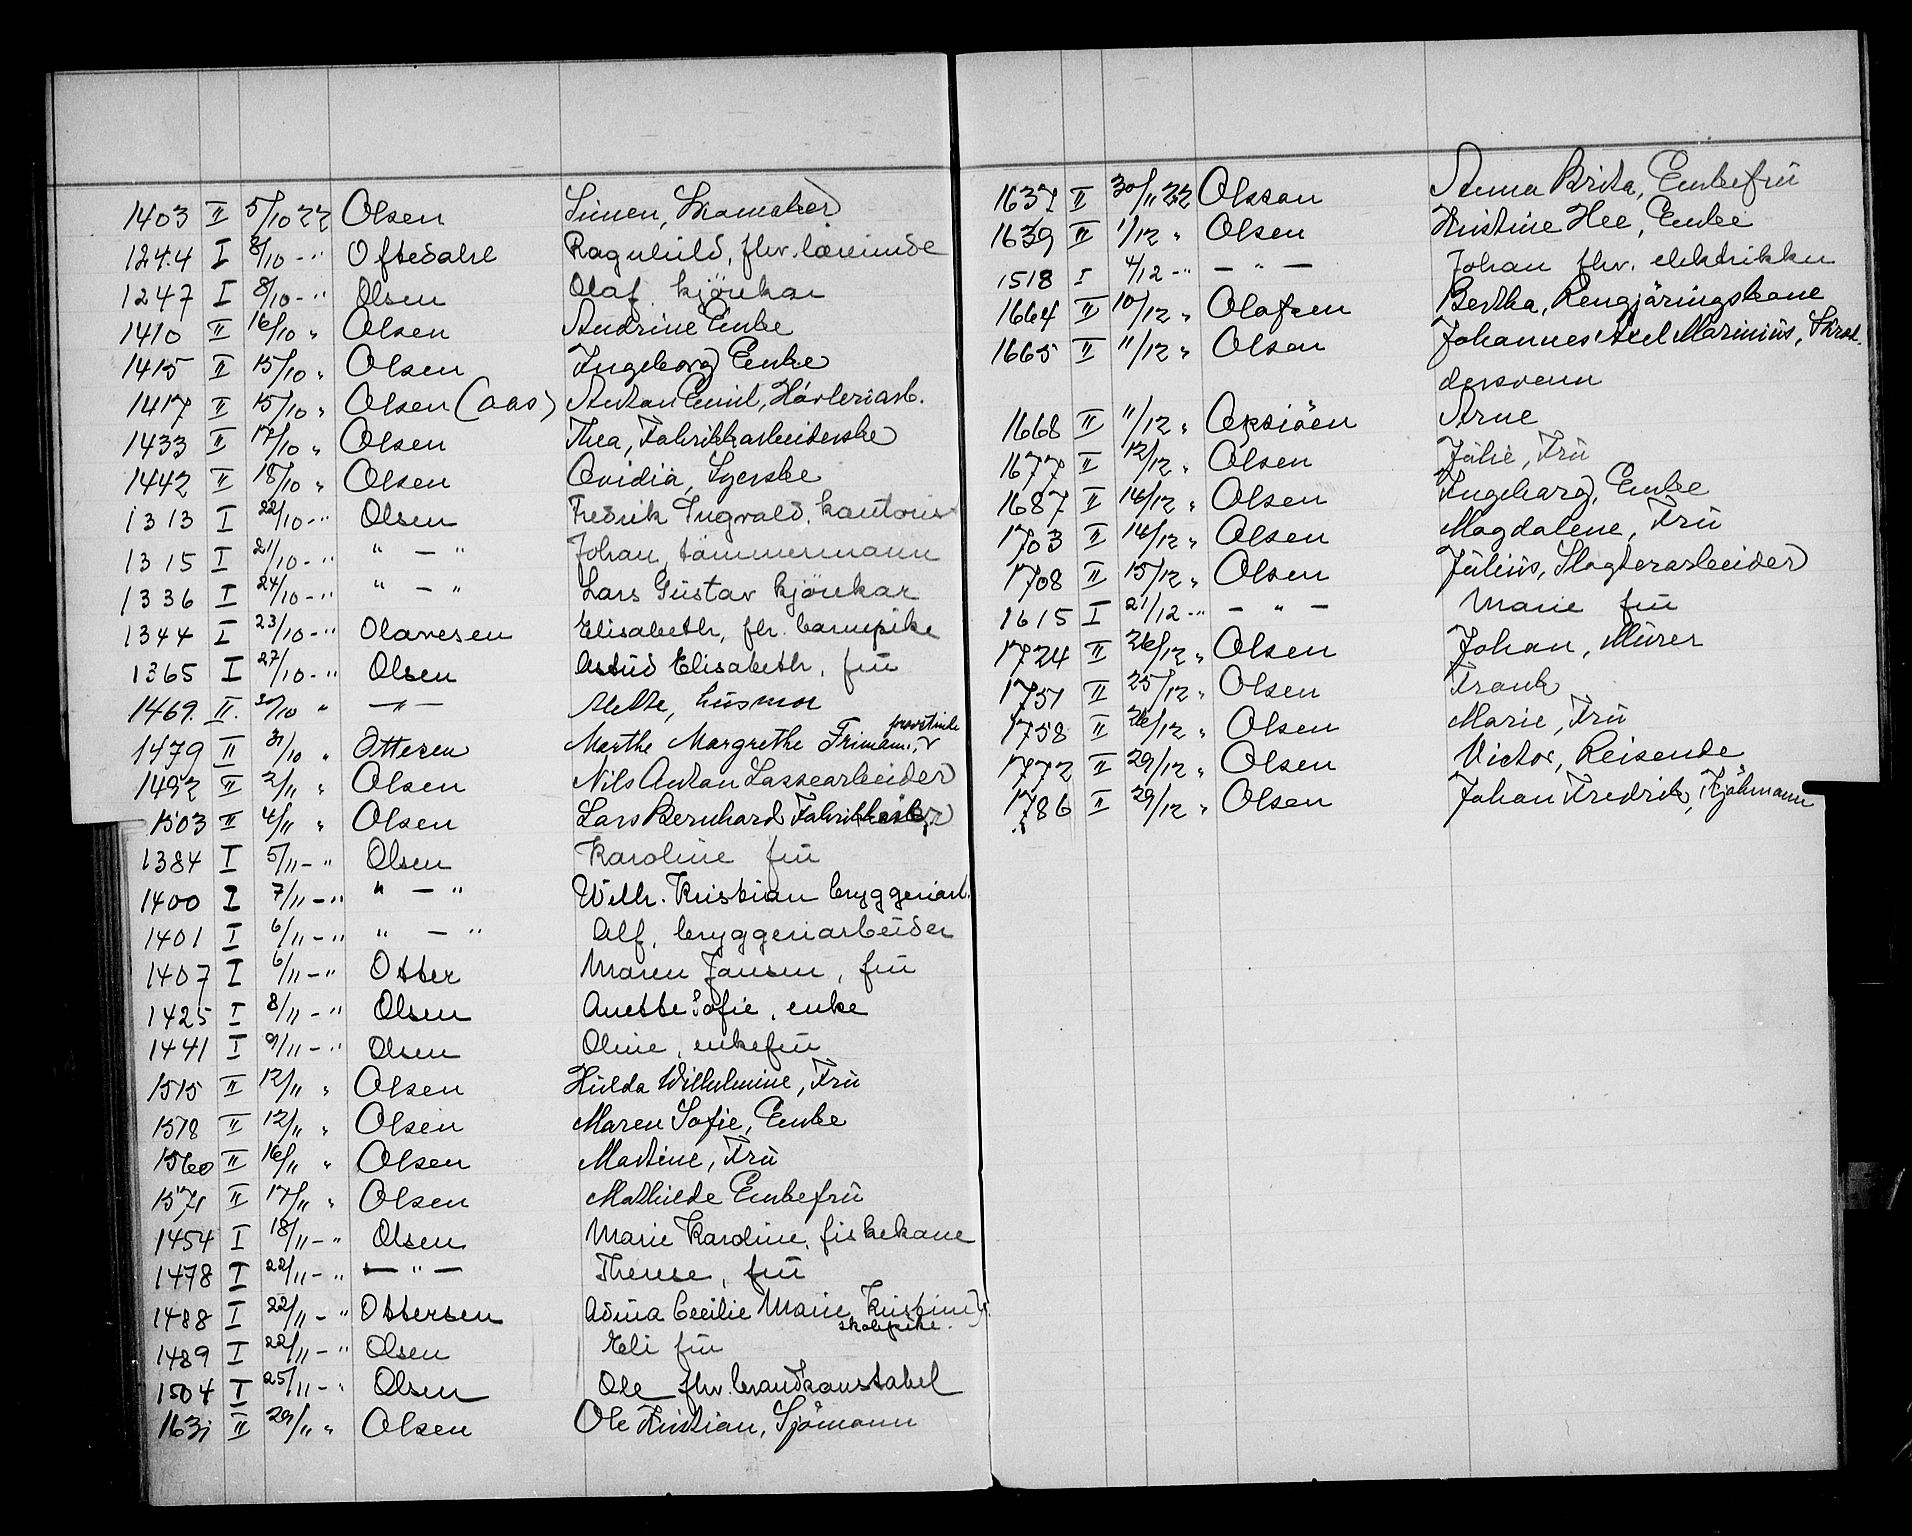 1403 II 5/10 22 Olsen Simen, Skomaker
1244 I 8/10 - " Oftedahl Ragnhild, fhv. lærerinde
1247 I 8/10 - " Olsen Olaf, kjörekar
1410 II 16/10 " Olsen Andrine Enke
1415 II 15/10 " Olsen Ingeborg Enke
1417 II 15/10 " Olsen (Aas) Anton Emil, Høvleriarb.
1433 II 17/10 " Olsen Thea, Fabrikkarbeiderske
1442 II 18/10 " Olsen Ovidia, Syerske
1313 I 22/10 - " Olsen Fredrik Ingvald, kontoris
1315 I 21/10 - " " - " Johan, tömmermann
1336 I 24/10 - " " - " Lars Gustav kjörekar
1344 I 23/10 - " Olavesen Elisabeth, fh. barnepike
1365 I 27/10 - " Olsen Astrid Elisabeth, frü
1469. II. 30/10 " - " - Mette, husmor
1479 II 31/10 " Ottesen Marthe Margrethe Frimann,
1492 II 2/11 " Olsen Nils Anton Lassearbeider
1503 II 4/11 " Olsen Lars Bernhard Fabrikkarb.
1384 I 5/11 - " Olsen Karoline frü
1400 I 7/11 - " " - " Wilh. Kristian bryggeriarb.
1401 I 6/11 - " " - " Alf, bryggeriarbeider
1407 I 6/11 - " Otter Maren Jansen, frü
1425 I 8/11 - " Olsen Anette Sofie, enke
1441 I 9/11 - " Olsen Oline, enkefrü
1515 II 12/11 " Olsen Hülda Wilhelmine, Frü
1518 II 12/11 " Olsen Maren Sofie, Enke
1560 II 16/11 " Olsen Martine, Frü
1571 II 17/11 " Olsen Mathilde Enkefrü
1454 I 18/11 - " Olsen Marie Karoline, fiskekone
1478 I 22/11 - " - " - Therese, frü
1488 I 22/11 - " Ottersen Adina Cecilie Marie Kristine
skolepike.
1489 I 22/11 - " Olsen Eli frü
1504 I 25/11 - " Olsen Ole fhv. brandkonstabel
1631 II 29/11 " Olsen Ole Kristian, Sjömann
1637 II 30/11 22 Olsson Anna Brita, Enkefrü
1639 II 1/12 " Olsen Kristine Hee, Enke
1518 I 4/12 - " - " - Johan fhv. elektrikker
1664 II 10/12 " Olafsen Bertha, Rengjøringskone
1665 II 11/12 " Olsen Johannes Axel Marinius, Skræd-
dersvenn
1668 II 11/12 " Opsiöen Arne
1677 II 12/12 " Olsen Jülie, Frü
1687 II 14/12 " Olsen Ingeborg, Enke
1703 II 14/12 " Olsen Magdalene, Frü
1708 II 15/12 " Olsen Jülius, Slagterarbeider
1615 I 21/12 - " - " - Marie frü
1724 II 26/12 " Olsen Johan, Mürer
1751 II 25/12 " Olsen Frank
1758 II 26/12 " Olsen Marie, Frü
1772 II 29/12 " Olsen Victor, Reisende
1786 II 29/12 " Olsen Johan Fredrik,